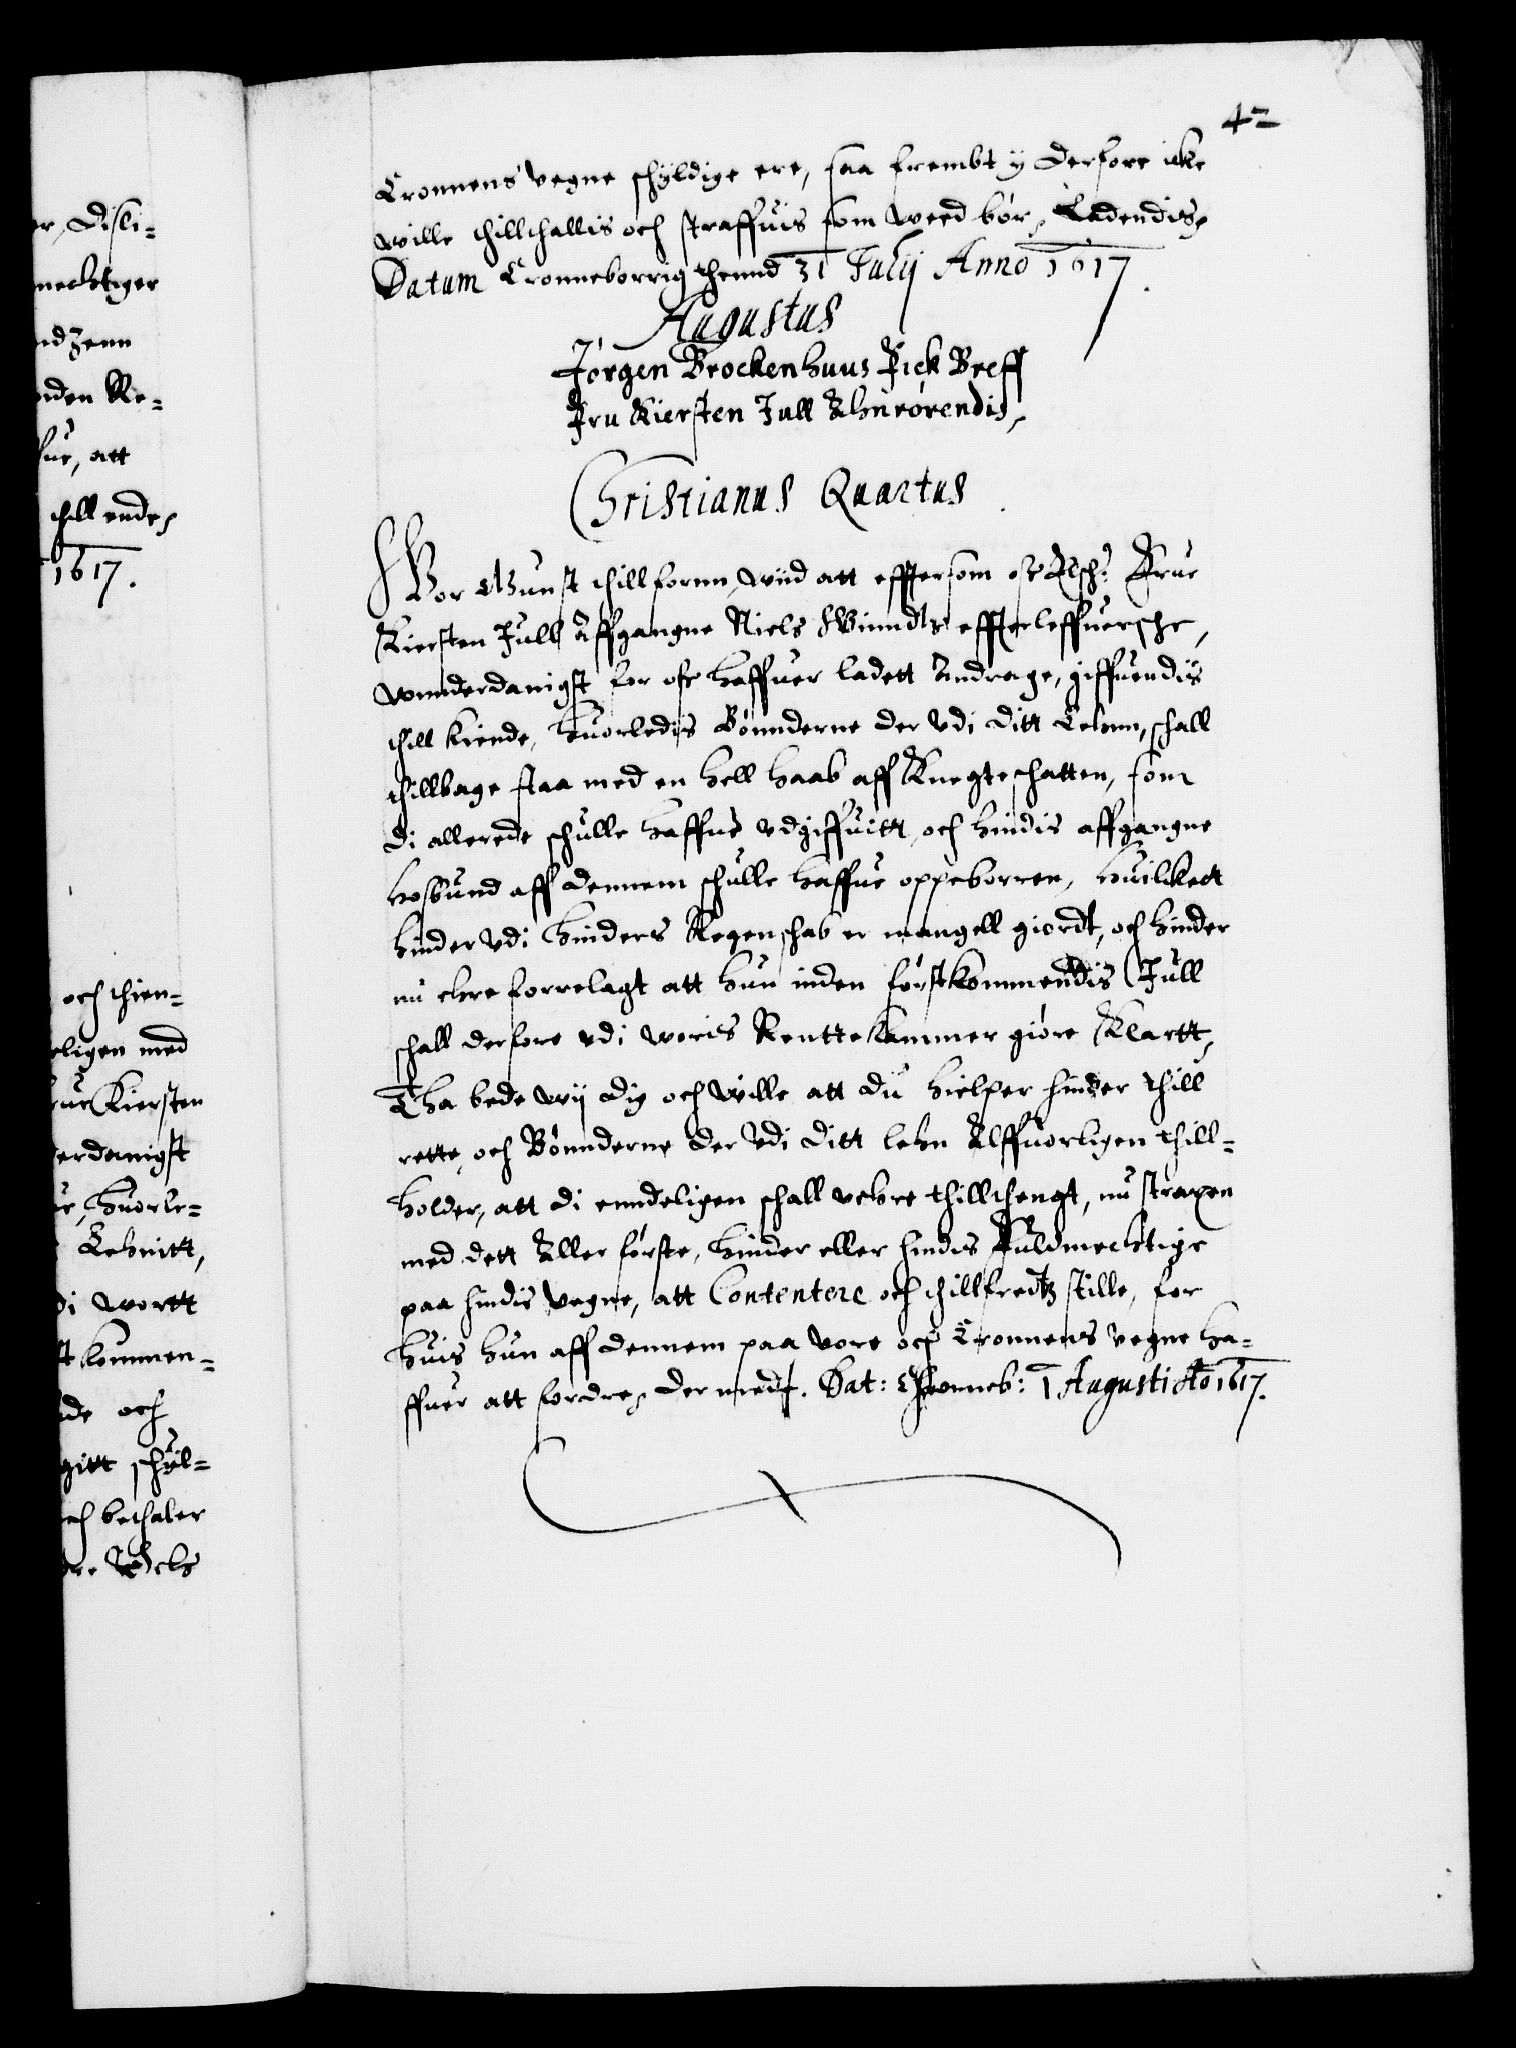 42
Cronnens vegne schyldige ere, saa frembt y derfore icke
wille thillthallis och straffuis som weed bør, Ladendis,
Datum Cronneborrig thennd 31 Julij Anno 1617.
Augustus
Jørgen Brockenhuus Fick Breff
Fru Kiersten Jull Ahnrørendis,
Christianus Quartus
Wor Gunst thillfornn, wiid att efftersom oss Elsch: Frue
Kiersten Jull Affgangne Niels Winndts effterleffuersche,
wnnderdanigst for oss haffuer ladett Andrage, giffuendis
thill kiende, huorledis Bønnderne der vdi ditt Lehnn, schall
thillbage staa med en hell haab aff Knegteschatten, som
di allerede schulle haffue vdgiffuitt, och hindis affgangne
hosbund aff dennem schulle haffue oppeborren, huilkett
hinder vdi hinders Regenschab er mangell giordt, och hinder
nu ehre forrelagt att hun inden førstkommendis Jull
schall derfore vdi woris Rentte Kammer giøre Klartt,
Tha bede wij dig och wille att du hielper hinder thill
rette, och Bønnderne der vdi ditt lehn Alffuorligen thill-
holder, att di enndeligen schall vehre thillthengt, nu straxen
med dett Aller første, hinder eller hindis Fuldmechtige
paa hindis vegne, att Contentere och thillfredtz stille, for
huis hun aff dennem paa vore och Cronnens vegne ha-
ffuer att fordre, der med. Dat: Cronneb: 1 Augusti Ao 1617.
er, Disli-
mechtiger
ndzenn
den Re-
fue, att
thill ende,
1617.
och thien-
eligen med
rue Kiersten
erdanigst
e, huorle-
Lehnitt,
di wortt
st kommen-
de och
gitt schyl-
ch bethaler